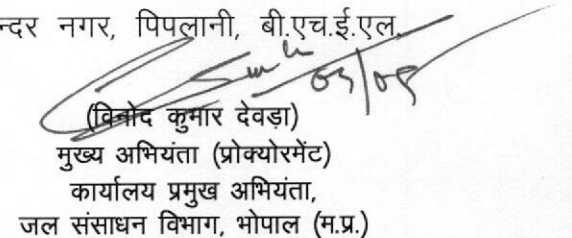 न्दर नगर, पिपलानी, बी.एच.ई.एल.
05/05
(विनोद कुमार देवड़ा)
मुख्य अभियंता (प्रोक्योरमेंट)
कार्यालय प्रमुख अभियंता,
जल संसाधन विभाग, भोपाल (म.प्र.)